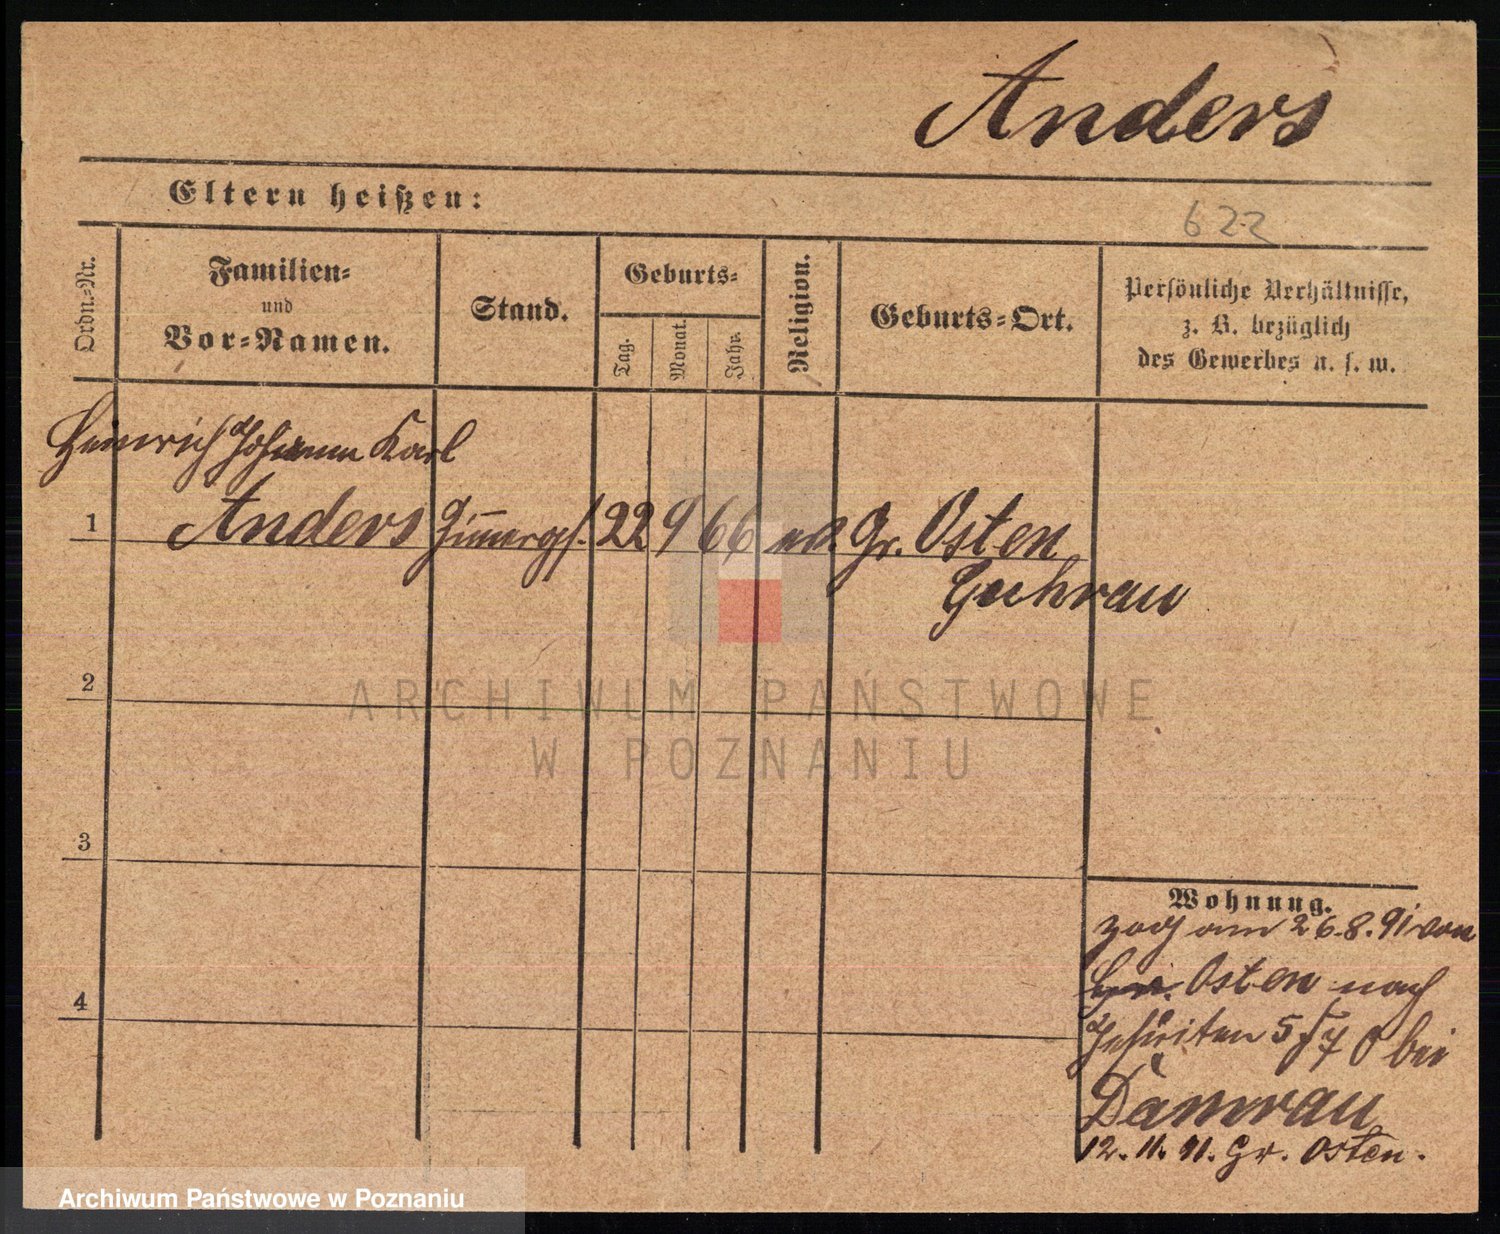 Anders
Eltern heißen:
622
Ordn.-Nr.
Familien-
und
Vor-Namen.
Stand.
Geburts-
Tag.
Monat.
Jahr.
Religion.
Geburts-Ort.
Persönliche Verhältnisse,
z. B. bezüglich
des Gewerbes u. s. w.
Heinrich Johann Karl
1 Anders Zimmergs. 22 9 66 ev. Gr. Osten
Guhrau
2
ARCHIWUM PAŃSTWOWE
W POZNANIU
3
Wohnung.
zog am 26.8.91 von
Osten nach
4
Jesuiten 5 bei
Damrau
12. 11. 91. Gr. Osten.
Archiwum Państwowe w Poznaniu